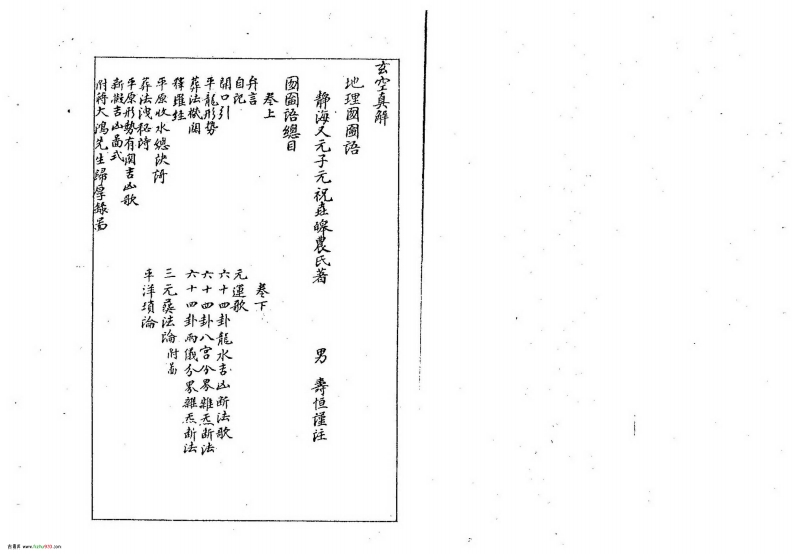 玄空真解
地理囫圇語
靜海又元子元祝垚皞農氏著 男 壽恒謹注
囫圇語總目
卷上
弁言
自記
開口引
平龍形勢
葬法撳闗
釋羅經
平原收水總訣訶
葬法洩秘訶
平原形勢有関吉凶歌
新擬吉凶啚式
附蔣大鴻先生歸厚錄啚
卷下
元運歌
六十四卦龍水吉凶断法歌
六十四卦八宮分界雜炁断法
六十四卦兩儀分界雜炁断法
三元葬法論 附啚
平洋墳論